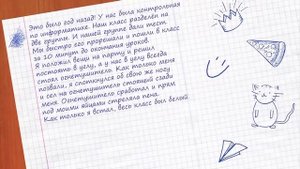 Это было год назад! У нас была контрольная
по информатике. Наш класс разделён на
две группы. И нашей группе дали тест.
Мы быстро его прорешали и пошли в класс
за 10 минут до окончания уроков.
Я положил вещи на парту и решил
постоять в углу, а у нас в углу всегда
стоял огнетушитель. Как только меня
позвали, я споткнулся об свою же ногу
и сел на огнетушитель стоящей сзади
меня. Огнетушитель сработал и прям
под моими яйцами стреляла пена.
Как только я встал, весь класс был белый.